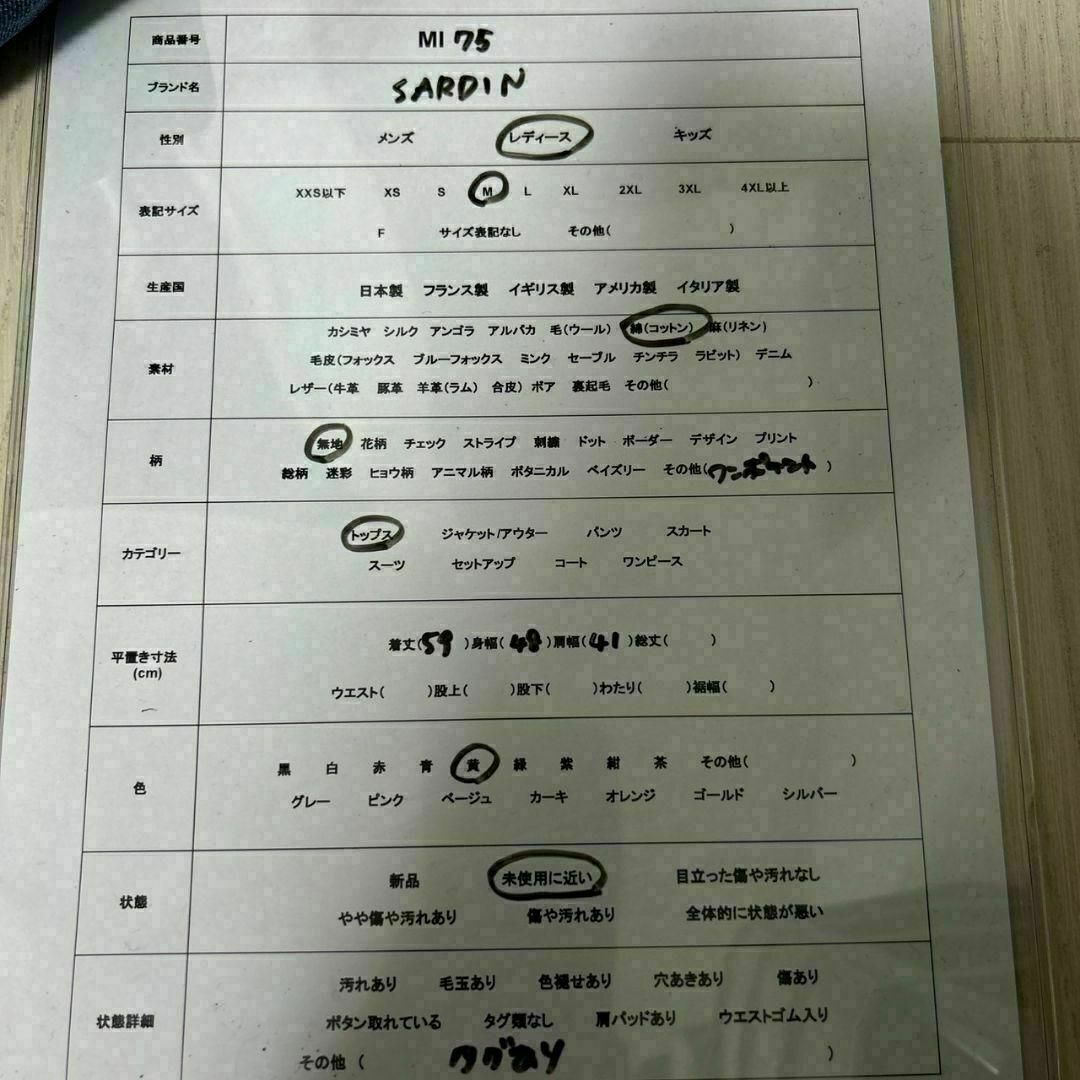 商品番号 MI 75
ブランド名 SARDIN
性別 メンズ レディース キッズ
表記サイズ XXS以下 XS S M L XL 2XL 3XL 4XL以上
F サイズ表記なし その他( )
生産国 日本製 フランス製 イギリス製 アメリカ製 イタリア製
カシミヤ シルク アンゴラ アルパカ 毛(ウール) 綿(コットン) 麻(リネン)
素材 毛皮(フォックス ブルーフォックス ミンク セーブル チンチラ ラビット) デニム
レザー(牛革 豚革 羊革(ラム) 合皮) ボア 裏起毛 その他( )
柄 無地 花柄 チェック ストライプ 刺繍 ドット ボーダー デザイン プリント
総柄 迷彩 ヒョウ柄 アニマル柄 ボタニカル ペイズリー その他(ワンポイント)
カテゴリー トップス ジャケット/アウター パンツ スカート
スーツ セットアップ コート ワンピース
平置き寸法 (cm) 着丈(59)身幅(48)肩幅(41)総丈( )
ウエスト( )股上( )股下( )わたり( )裾幅( )
色 黒 白 赤 青 黄 緑 紫 紺 茶 その他( )
グレー ピンク ベージュ カーキ オレンジ ゴールド シルバー
状態 新品 未使用に近い 目立った傷や汚れなし
やや傷や汚れあり 傷や汚れあり 全体的に状態が悪い
汚れあり 毛玉あり 色褪せあり 穴あきあり 傷あり
状態詳細 ボタン取れている タグ類なし 肩パッドあり ウエストゴム入り
その他 ( タグあり )